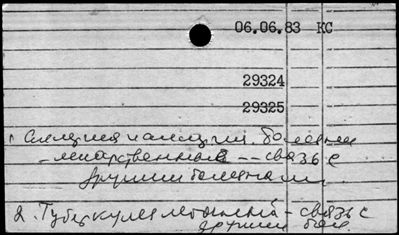 06.06.83 КС
29324
29325
болезни
- лекарственный -- связь с
другими болезнями
2. Туберкулез легочный - связь с
другими бол.